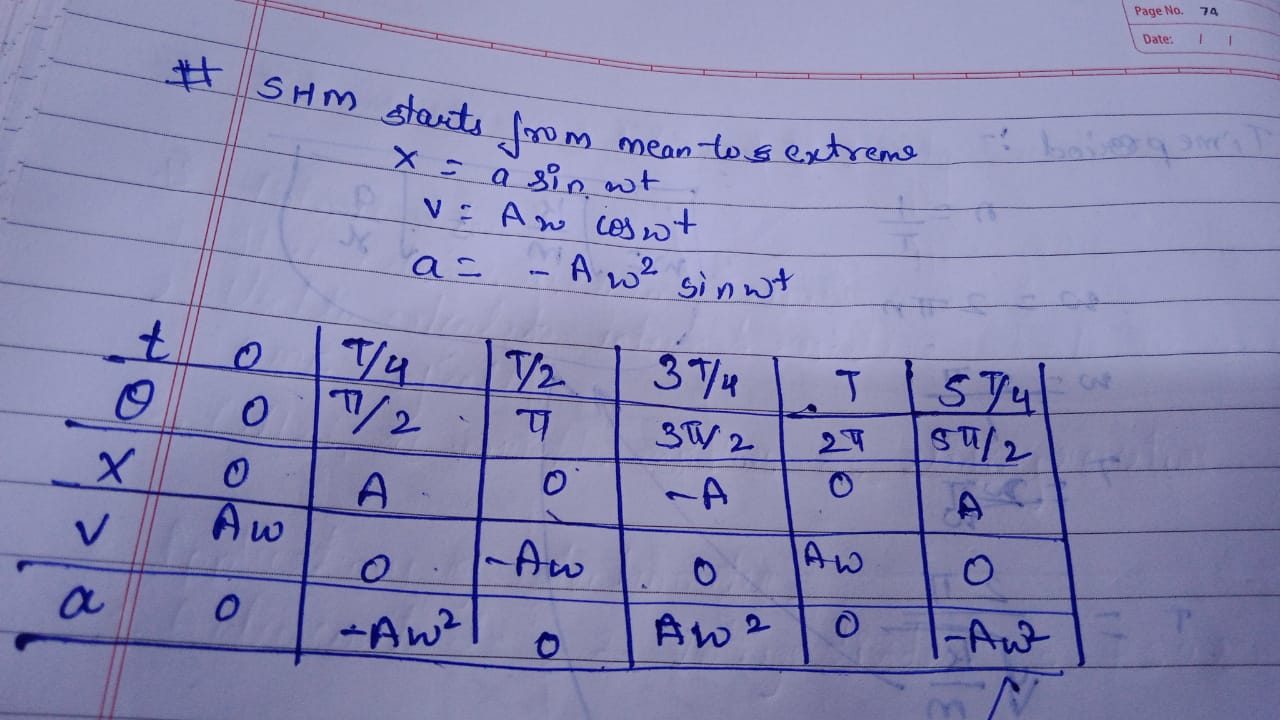 Page No. 74
Date: / /
# SHM starts from mean to extreme
x = a sin wt
v = Aw cos wt
a = - Aw² sin wt
t 0 T/4 T/2 3T/4 T 5T/4
θ 0 π/2 π 3π/2 2π 5π/2
x 0 A 0 -A 0 A
v Aw 0 -Aw 0 Aw 0
a 0 -Aw² 0 Aw² 0 -Aw²